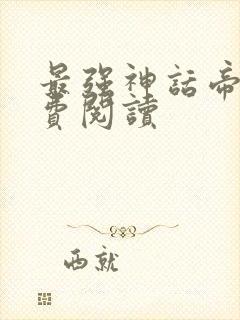 最强神話帝
費閱讀
西就